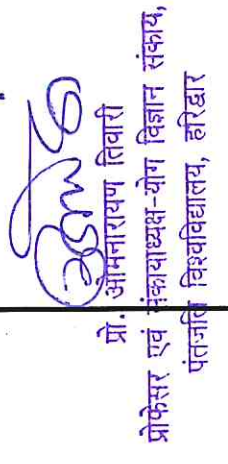 प्रो. ओमनारायण तिवारी
प्रोफेसर एवं संकायाध्यक्ष-योग विज्ञान संकाय,
पंतजलि विश्वविद्यालय, हरिद्वार